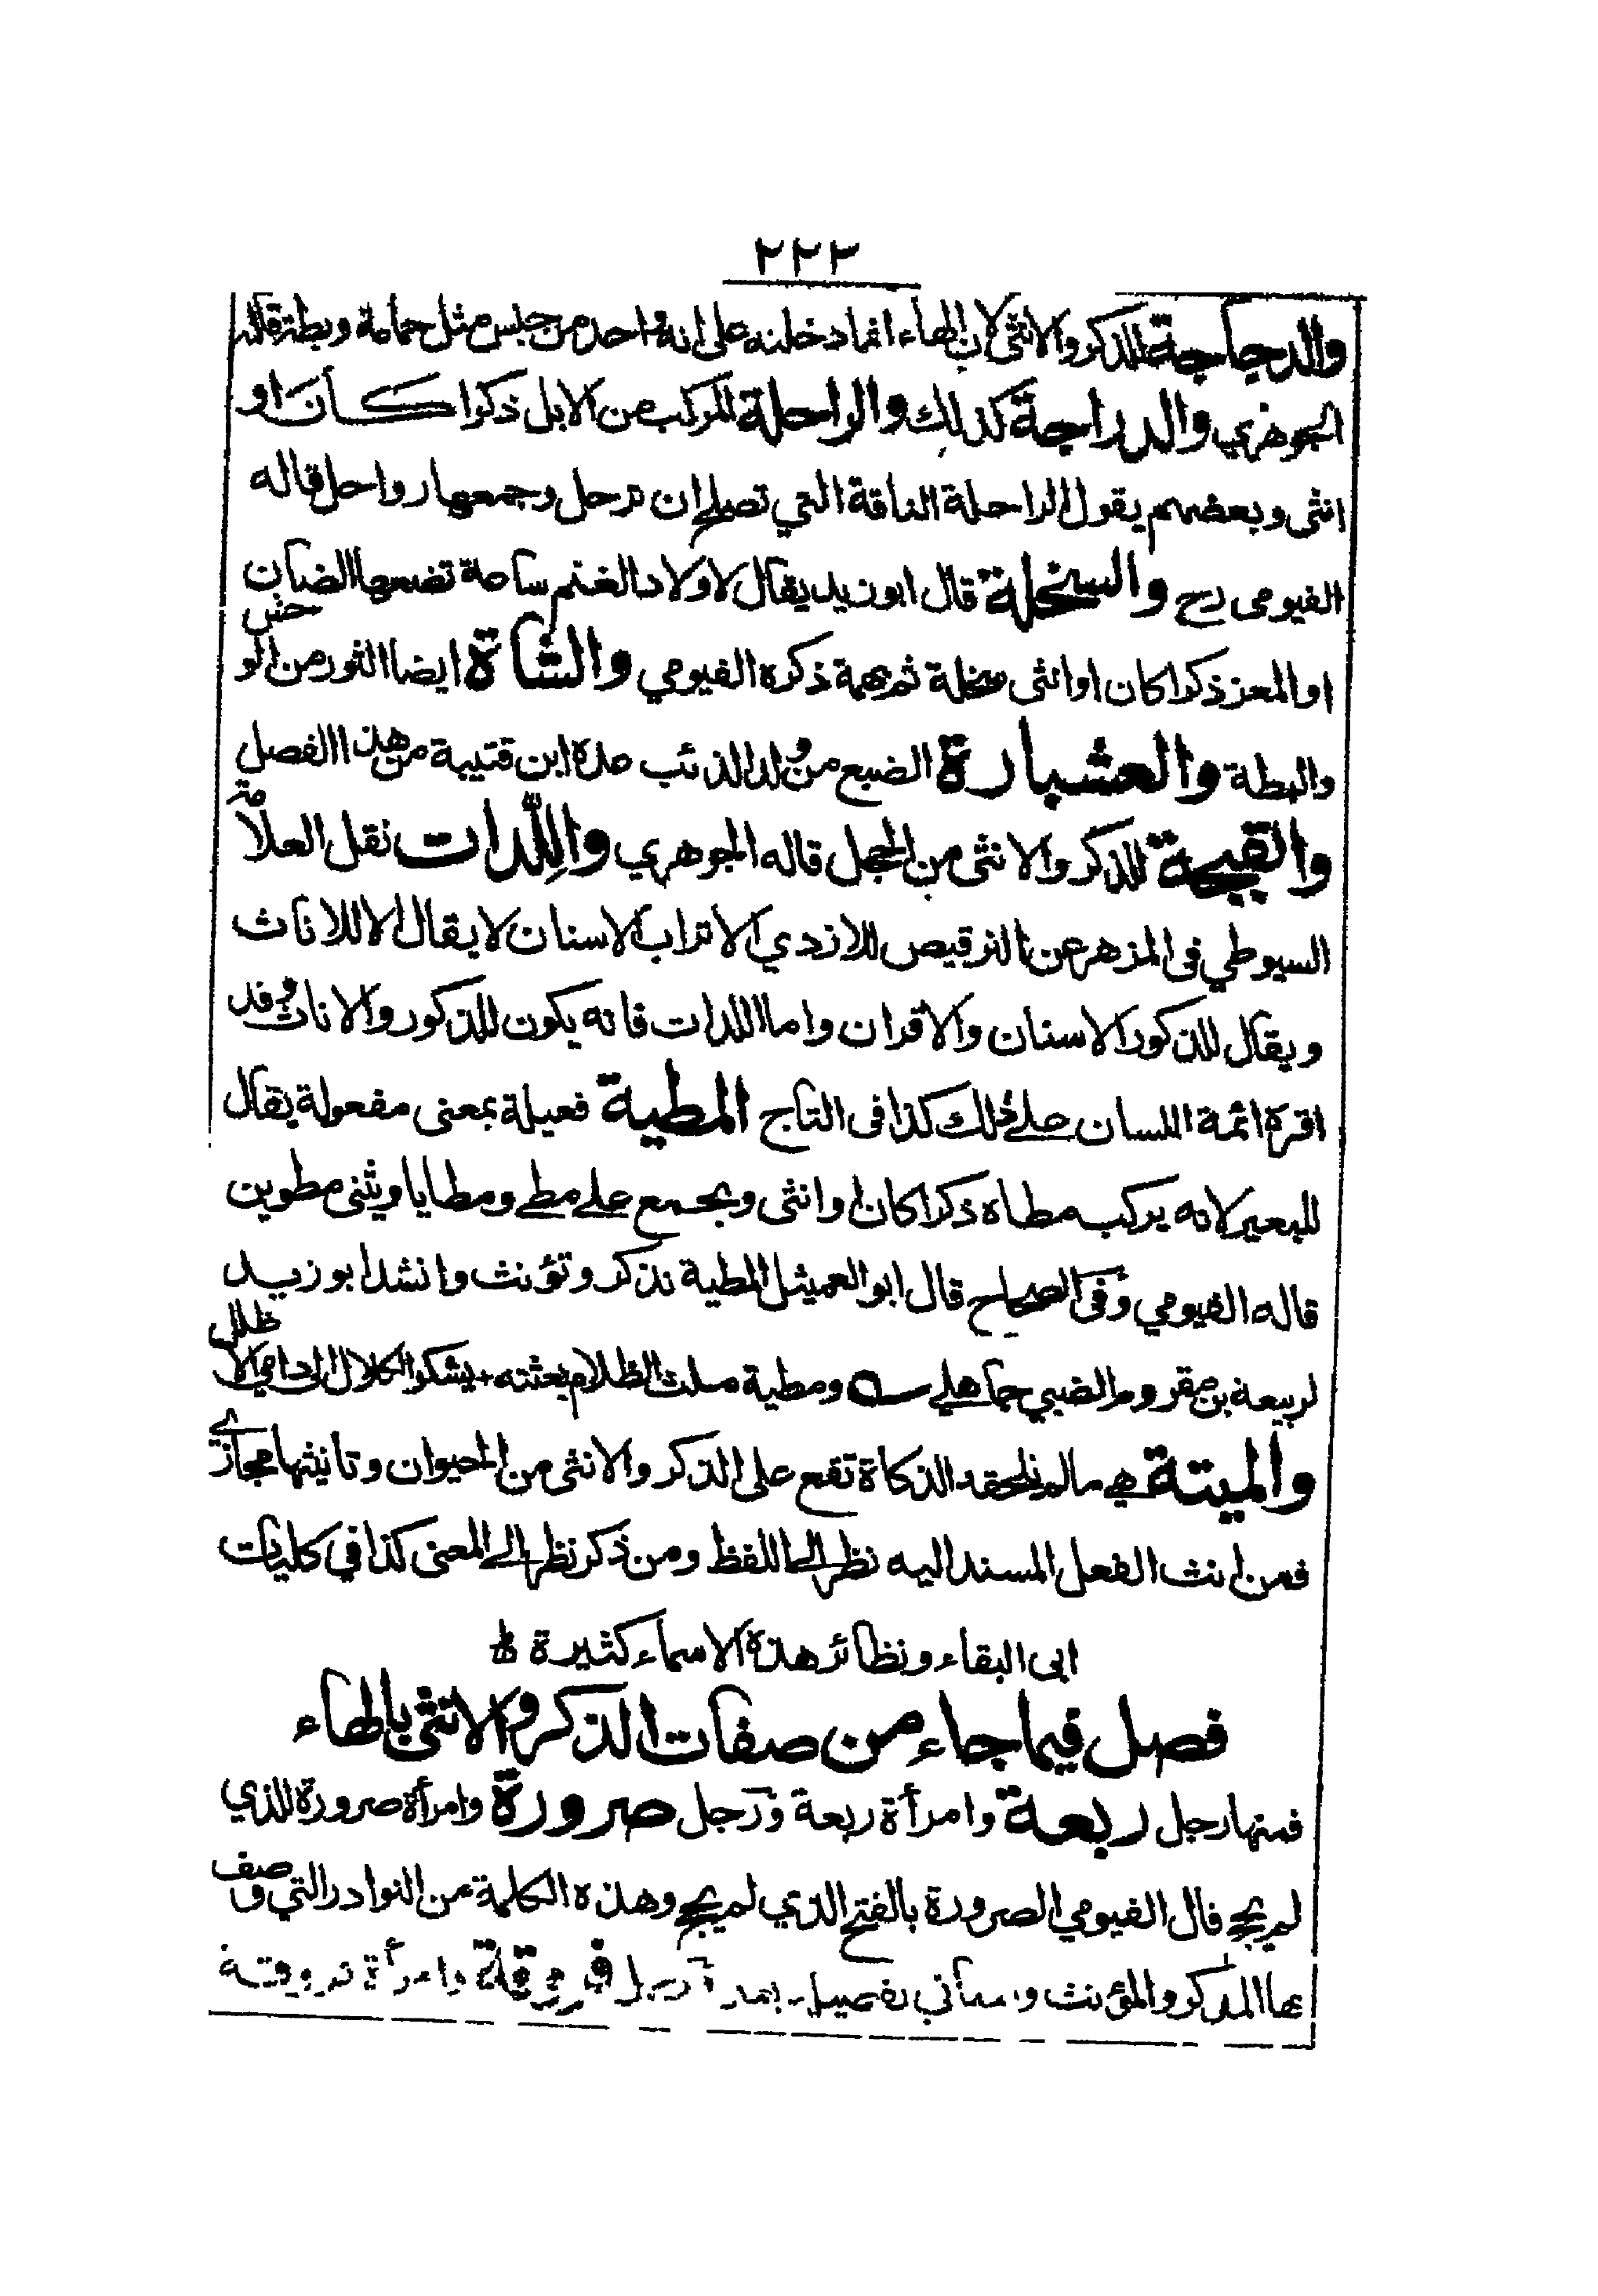 ٢٢٣
والدجاجة للذكر والانثى لان الهاء انما دخلته على انه واحد من جنس مثل حمامة وبطة قاله
الجوهري والدراجة كذلك والراحلة المركب من الابل ذكرا كان او
انثى وبعضهم يقول الراحلة الناقة التي تصلح ان ترحل وجمعها رواحل قاله
الفيومى رح والسخلة قال ابو زيد يقال لاولاد الغنم ساعة تضعها الضان
او المعز ذكرا كان او انثى سخلة ثم بهمة ذكره الفيومي والشاة ايضا الثور من الوحش
والبطة والعشبارة الضبع من ولد الذئب عده ابن قتيبة من هذا الفصل
والقبجة للذكر والانثى من الحجل قاله الجوهري واللِّدات نقل العلامة
السيوطي فى المزهر عن الترقيص للازدي الاتراب الاسنان لا يقال الا للاناث
ويقال للذكور الاسنان والاقران واما اللدات فانه يكون للذكور والاناث وقد
اقره ائمة اللسان على ذلك كذا فى التاج المطية فعيلة بمعنى مفعولة يقال
للبعير لانه يركب مطاه ذكرا كان او انثى ويجمع على مطي ومطايا ويثنى مطوين
قاله الفيومي وفى الصحاح قال ابو العميثل المطية تذكر وتؤنث وانشد ابو زيد
لربيعة بن مقروم الضبي جاهلي ومطية ملث الظلام بعثته + يشكو الكلال الى دامي الاظلل
والميتة هي مالم تلحقه الذكاة تقع على الذكر والانثى من الحيوان وتانيثها مجازي
فمن انث الفعل المسند اليه نظر الى اللفظ ومن ذكر نظر الى المعنى كذا في كليات
ابى البقاء ونظائر هذه الاسماء كثيرة
فصل فيما جاء من صفات الذكر والانثى بالهاء
فمنها رجل ربعة وامرأة ربعة ورجل صرورة وامرأة صرورة للذي
لم يحج قال الفيومي الصرورة بالفتح الذي لم يحج وهذه الكلمة من النوادر التي وصف
بها المذكر والمؤنث وسيأتي تفصيله رجل فروقة وامرأة فروقة